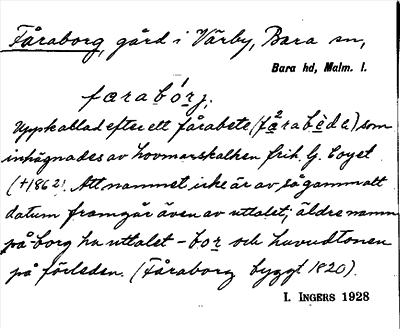 Fåraborg, gård i Värby, Bara sn,
Bara hd, Malm. l.
færabórj.
Uppkallad efter ett fårabete (fǽrabèda) som
inhägnades av hovmarskalken frih. G. Coyet
(†1862). Att namnet icke är av så gammalt
datum framgår även av uttalet; äldre namn
på -borg ha uttalet -bor och huvudtonen
på förleden. (Fåraborg byggt 1820).
I. INGERS 1928